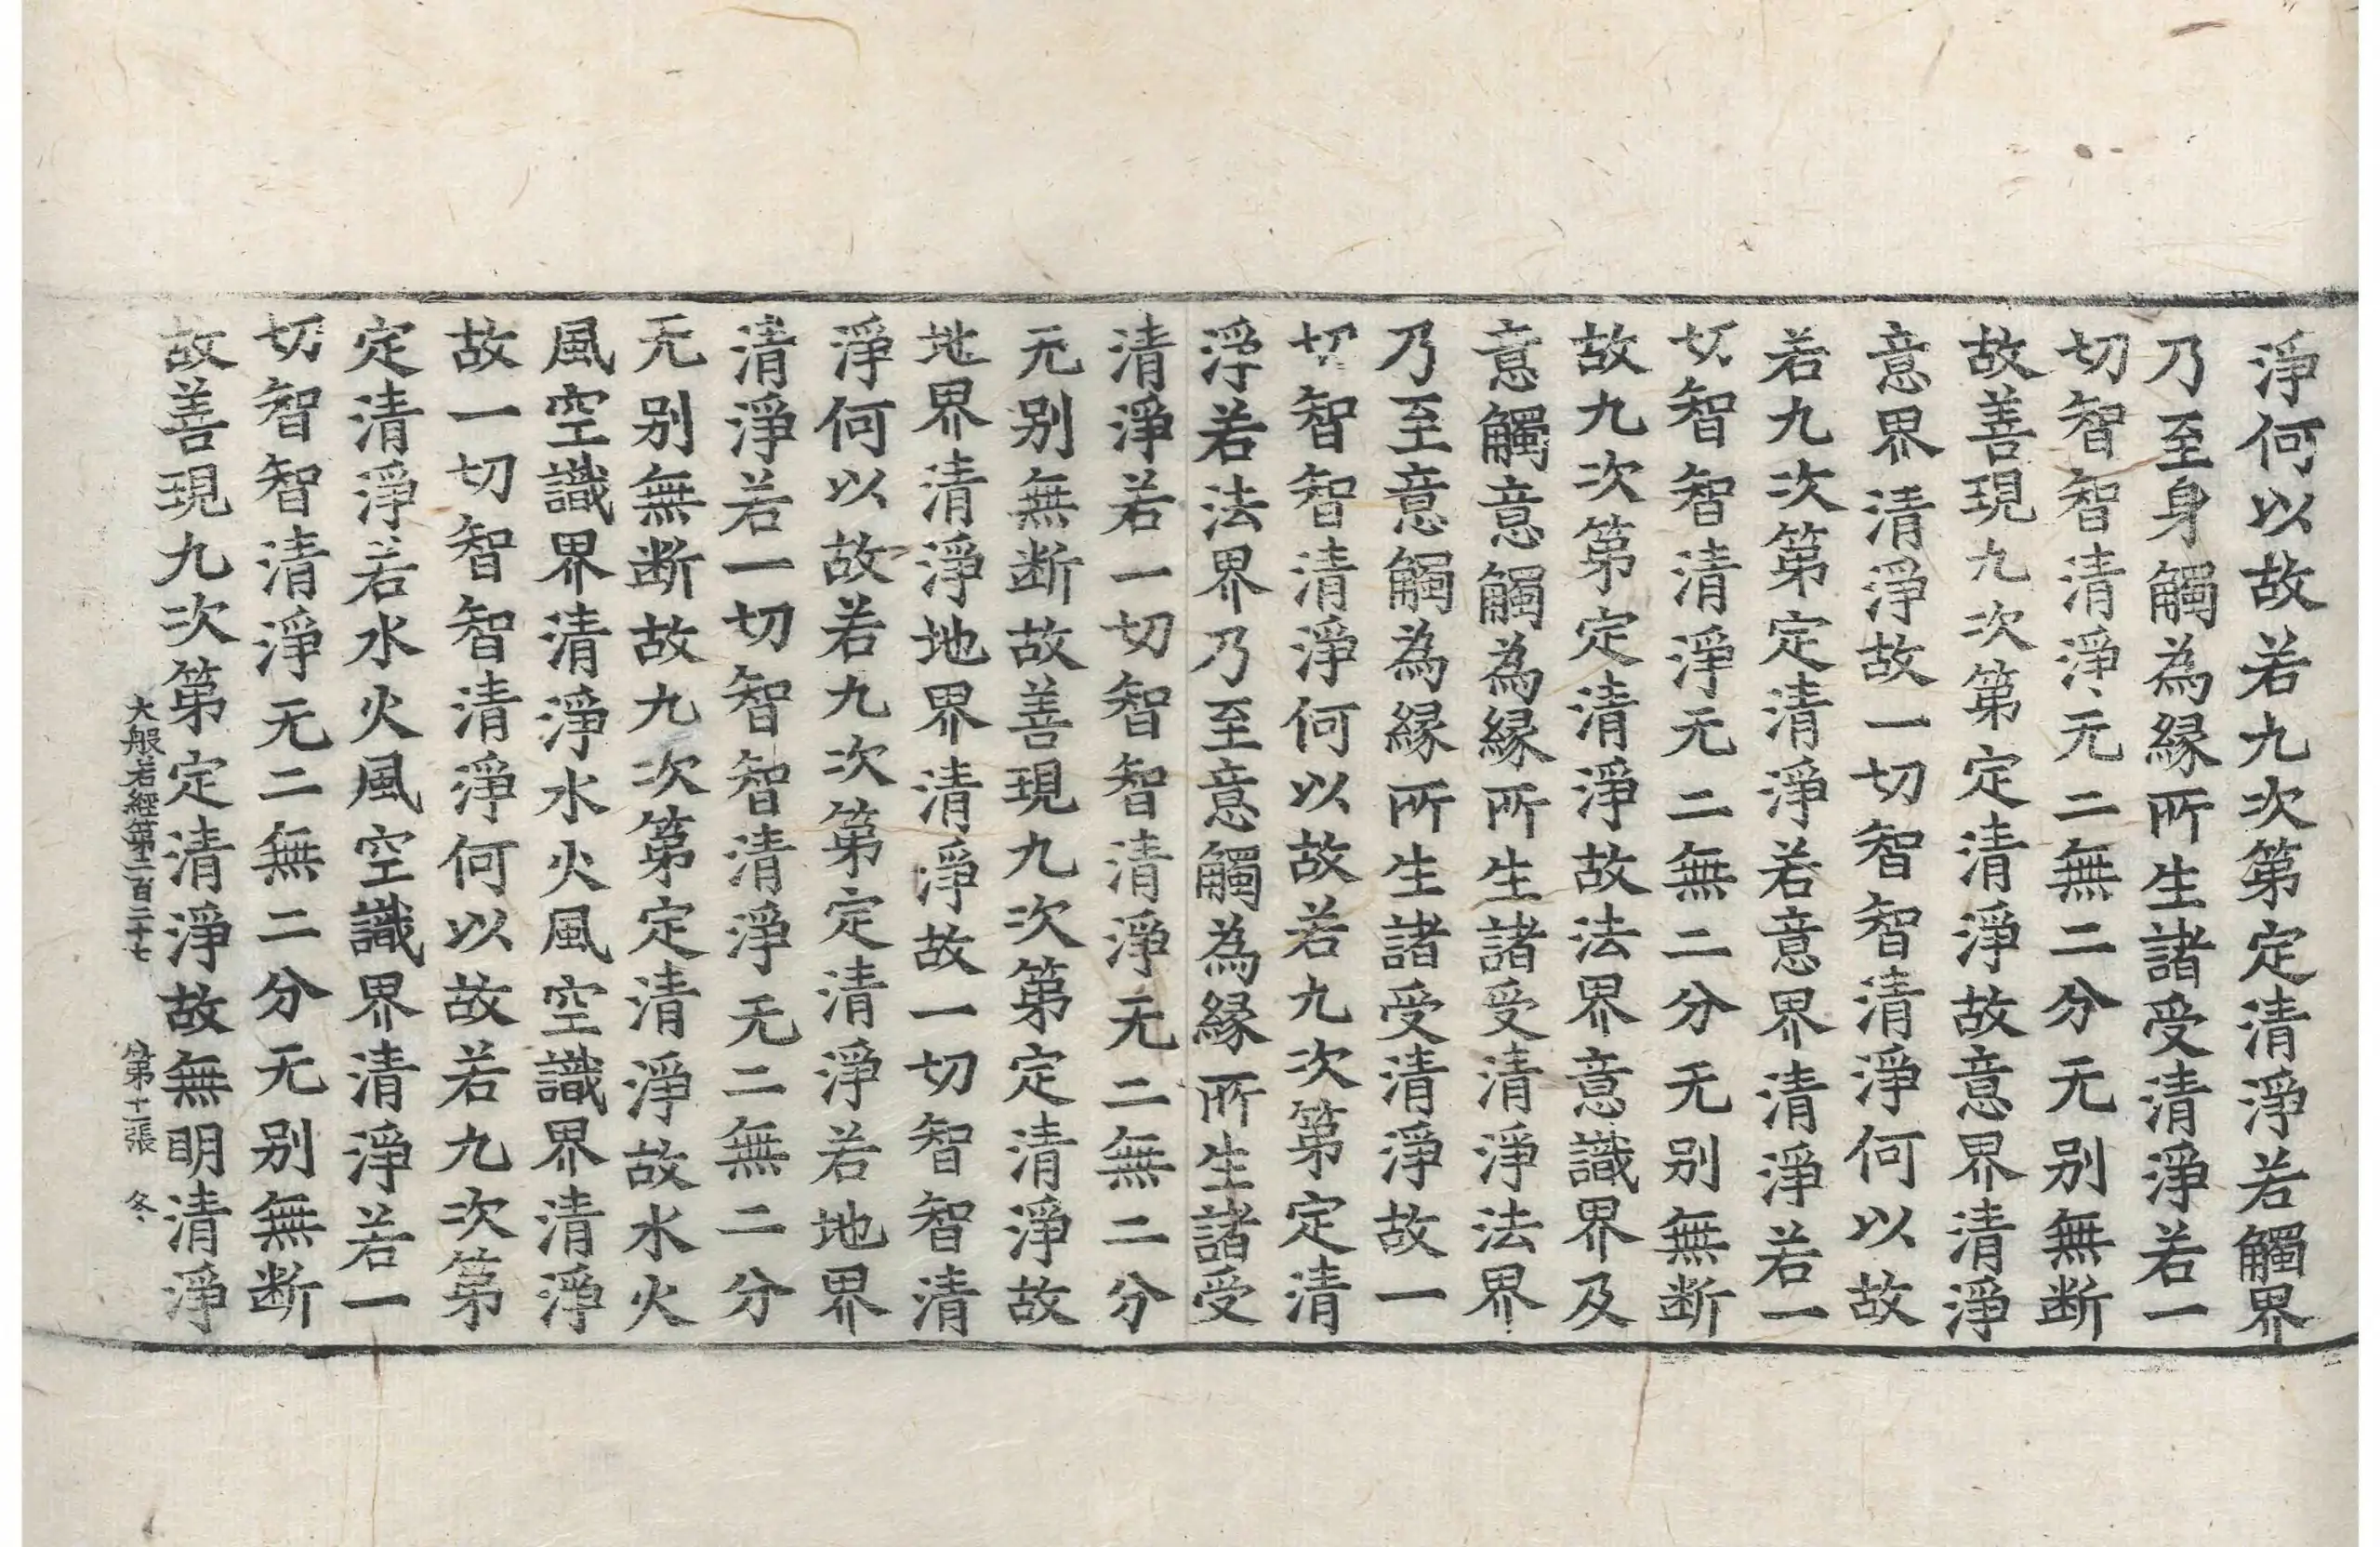 淨何以故若九次第定清淨若觸界
乃至身觸為縁所生諸受清淨若一
切智智清淨无二無二分无別無断
故善現九次第定清淨故意界清淨
意界清淨故一切智智清淨何以故
若九次第定清淨若意界清淨若一
切智智清淨无二無二分无別無断
故九次第定清淨故法界意識界及
意觸意觸為縁所生諸受清淨法界
乃至意觸為縁所生諸受清淨故一
切智智清淨何以故若九次第定清
淨若法界乃至意觸為縁所生諸受
清淨若一切智智清淨无二無二分
无別無断故善現九次第定清淨故
地界清淨地界清淨故一切智智清
淨何以故若九次第定清淨若地界
清淨若一切智智清淨无二無二分
无別無断故九次第定清淨故水火
風空識界清淨水火風空識界清淨
故一切智智清淨何以故若九次第
定清淨若水火風空識界清淨若一
切智智清淨无二無二分无別無断
故善現九次第定清淨故無明清淨
大般若經第二百二十七 第十二張 冬